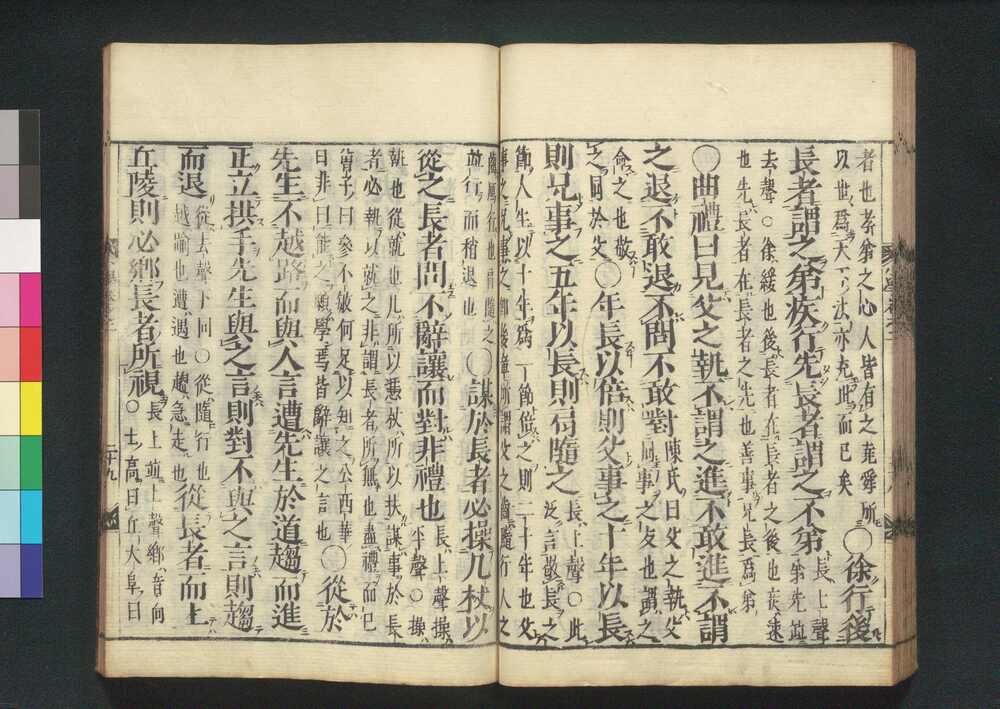 者也孝弟之心人皆有之堯舜所
以世爲天下法亦充此而已矣
〇徐行後
長者謂之弟疾行先長者謂之不弟
長上聲
弟先並
去聲〇徐緩也後長者在長者之後也疾速
也先長者在長者之先也善事兄長爲弟
〇曲禮曰見父之執不謂之進不敢進不謂
之退不敢退不問不敢對
陳氏曰父之執父
同事之友也謂之
命之也敬
之同於父
〇年長以倍則父事之十年以長
則兄事之五年以長則肩隨之
長上聲〇此
泛言敬長之
節人生以十年爲一節倍之則二十年也父
事之兄事之即後章所謂父之齒隨行人之
鴈行也肩隨之
並行而稍退也
〇謀於長者必操几杖以
從之長者問不辭讓而對非禮也
長上聲操
平聲〇操
執也從就也几所以憑杖所以扶謀事於長
者必執以就之非謂長者所無也盡禮而已
曾子曰參不敏何足以知之公西華
曰非曰能之願學焉皆辭讓之言也
〇從於
先生不越路而與人言遭先生於道趨而進
正立拱手先生與之言則對不與之言則趨
而退
從去聲下同〇從隨行也
越踰也遭遇也趨急走也
從長者而上
丘陵則必鄉長者所視
長上並上聲鄉音向
〇土高曰丘大阜曰
二十九